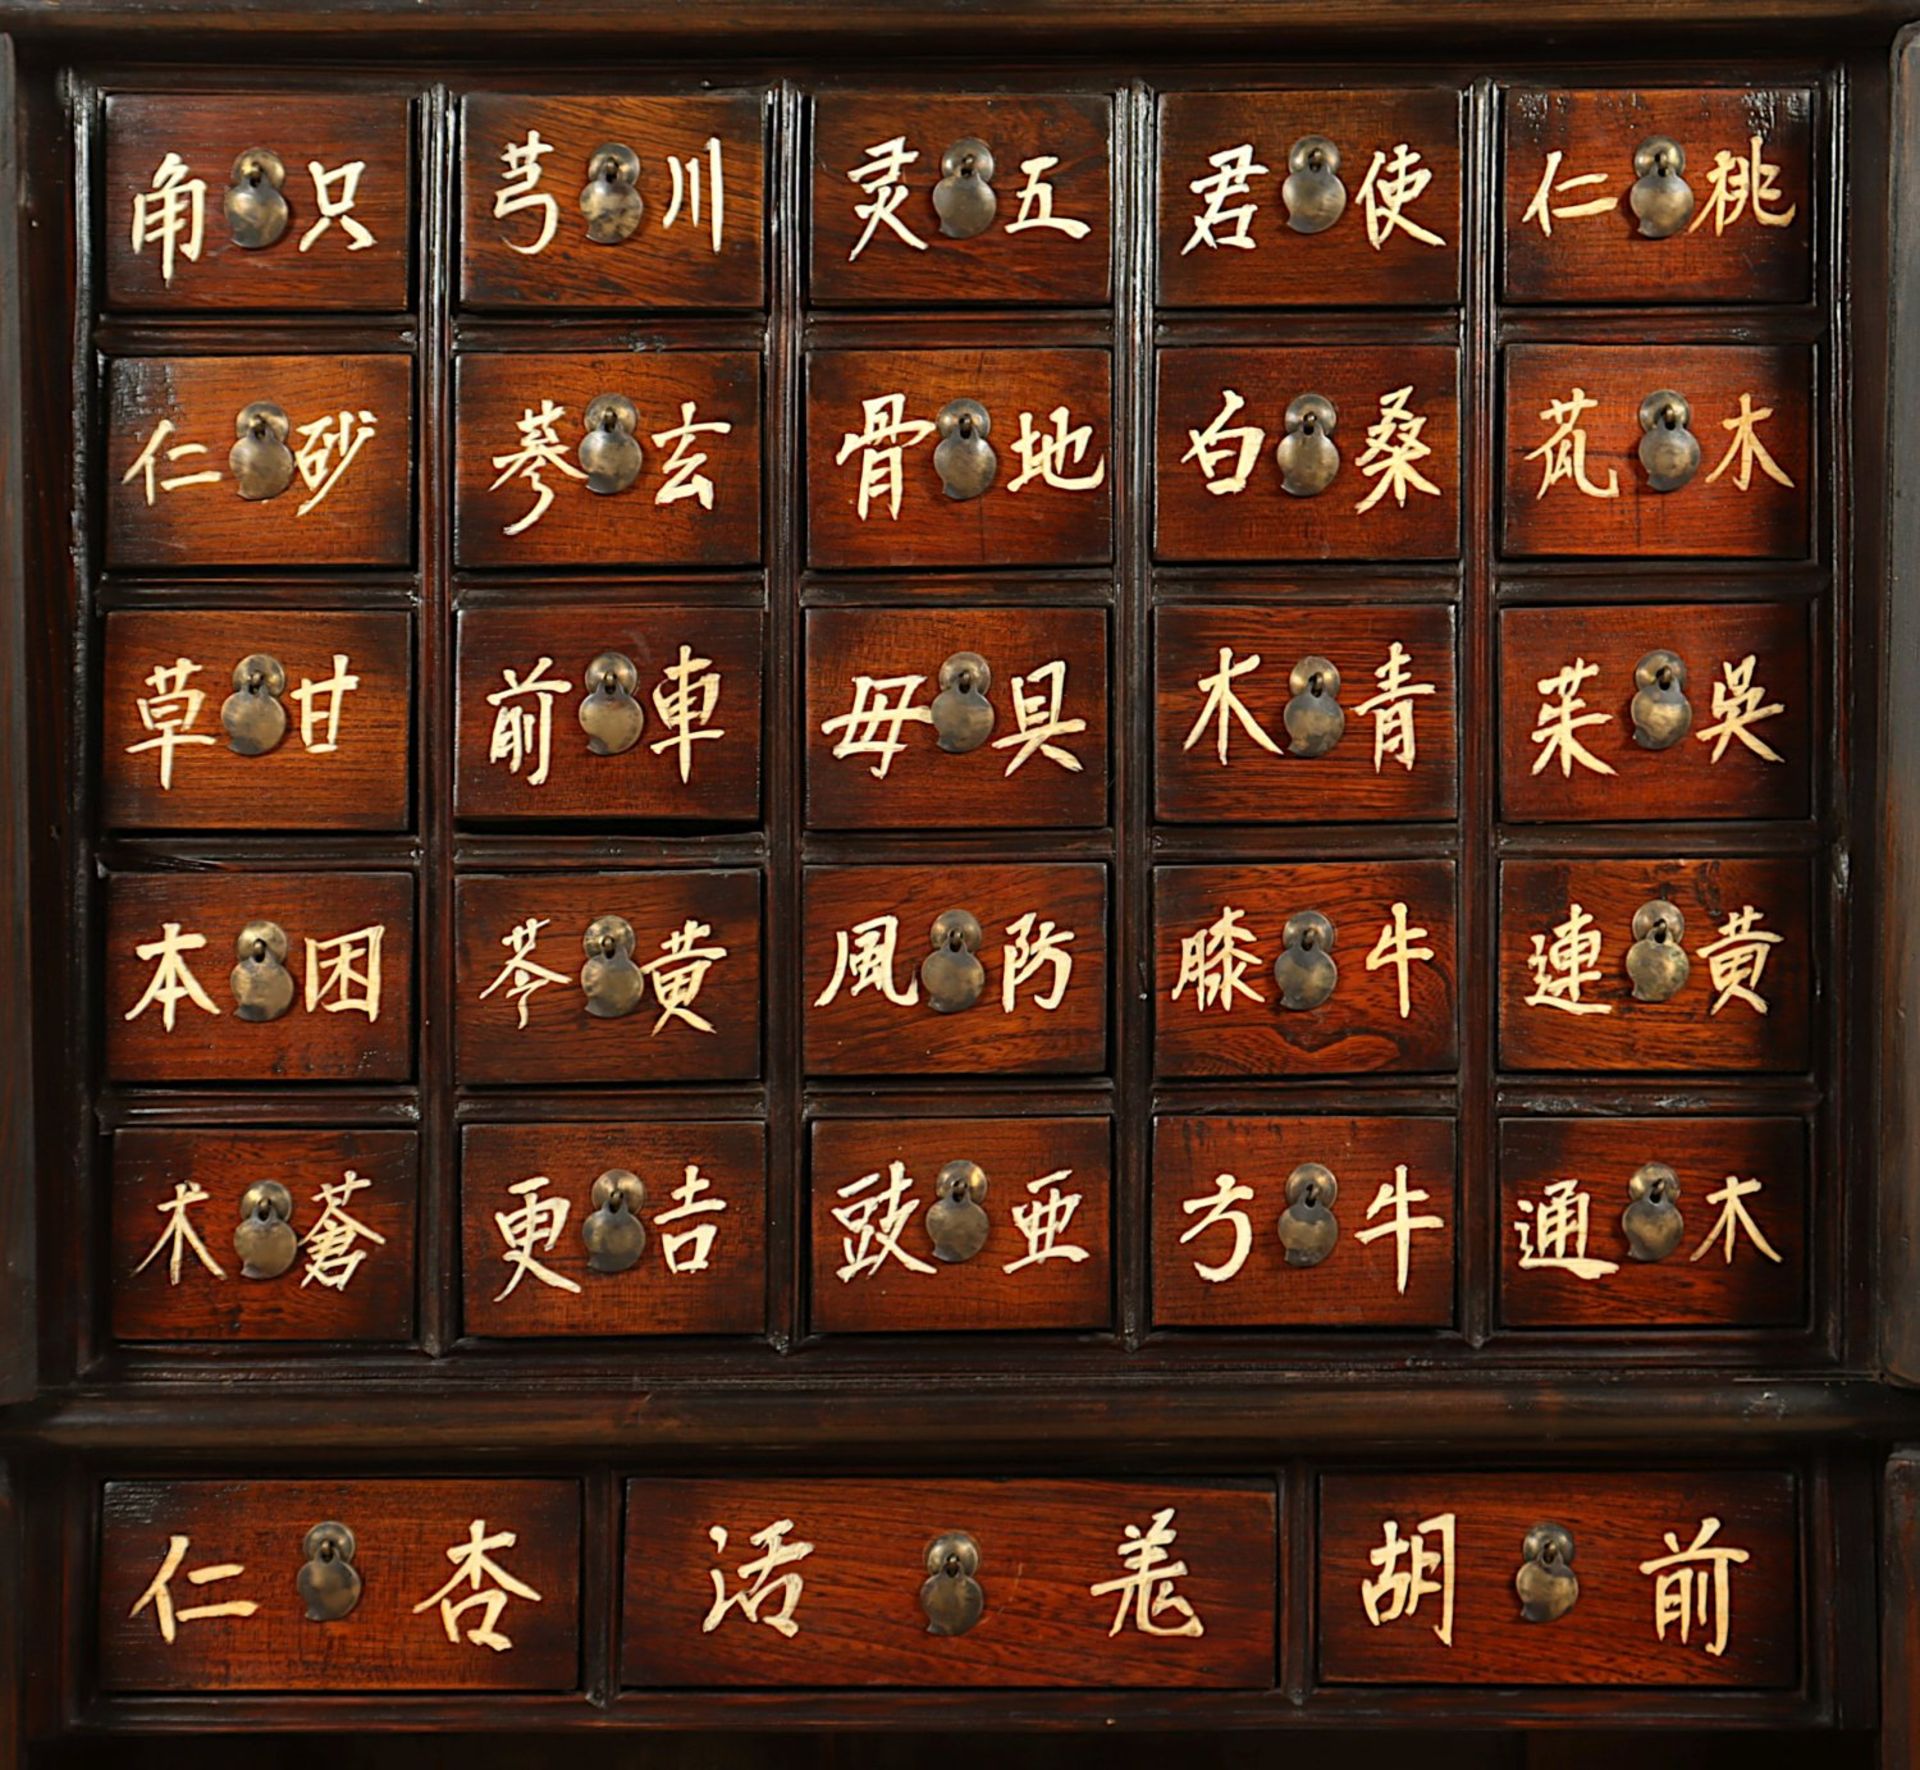 桃仁
使君
五灵
川芎
只角
木苽
桑白
地骨
玄蔘
砂仁
吳茱
青木
具毋
車前
甘草
黄連
牛膝
防風
黄芩
困本
木通
牛方
亜豉
吉更
蒼木
前胡
羌活
杏仁